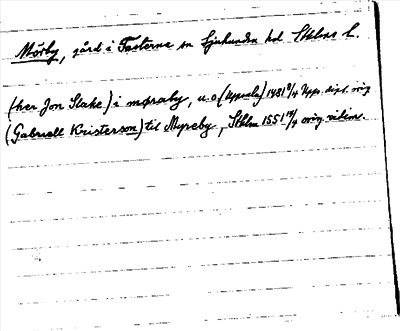 Mörby, gård i Fasterna sn Sjuhundra hd Sthlms l.
(her Jon Stake) i møraby, u.o. (Uppsala) 1481 9/4 Upps. dipl. orig
(Gabriell Kristerson) til Myreby, Sthlm 1551 15/7 orig. vidim.